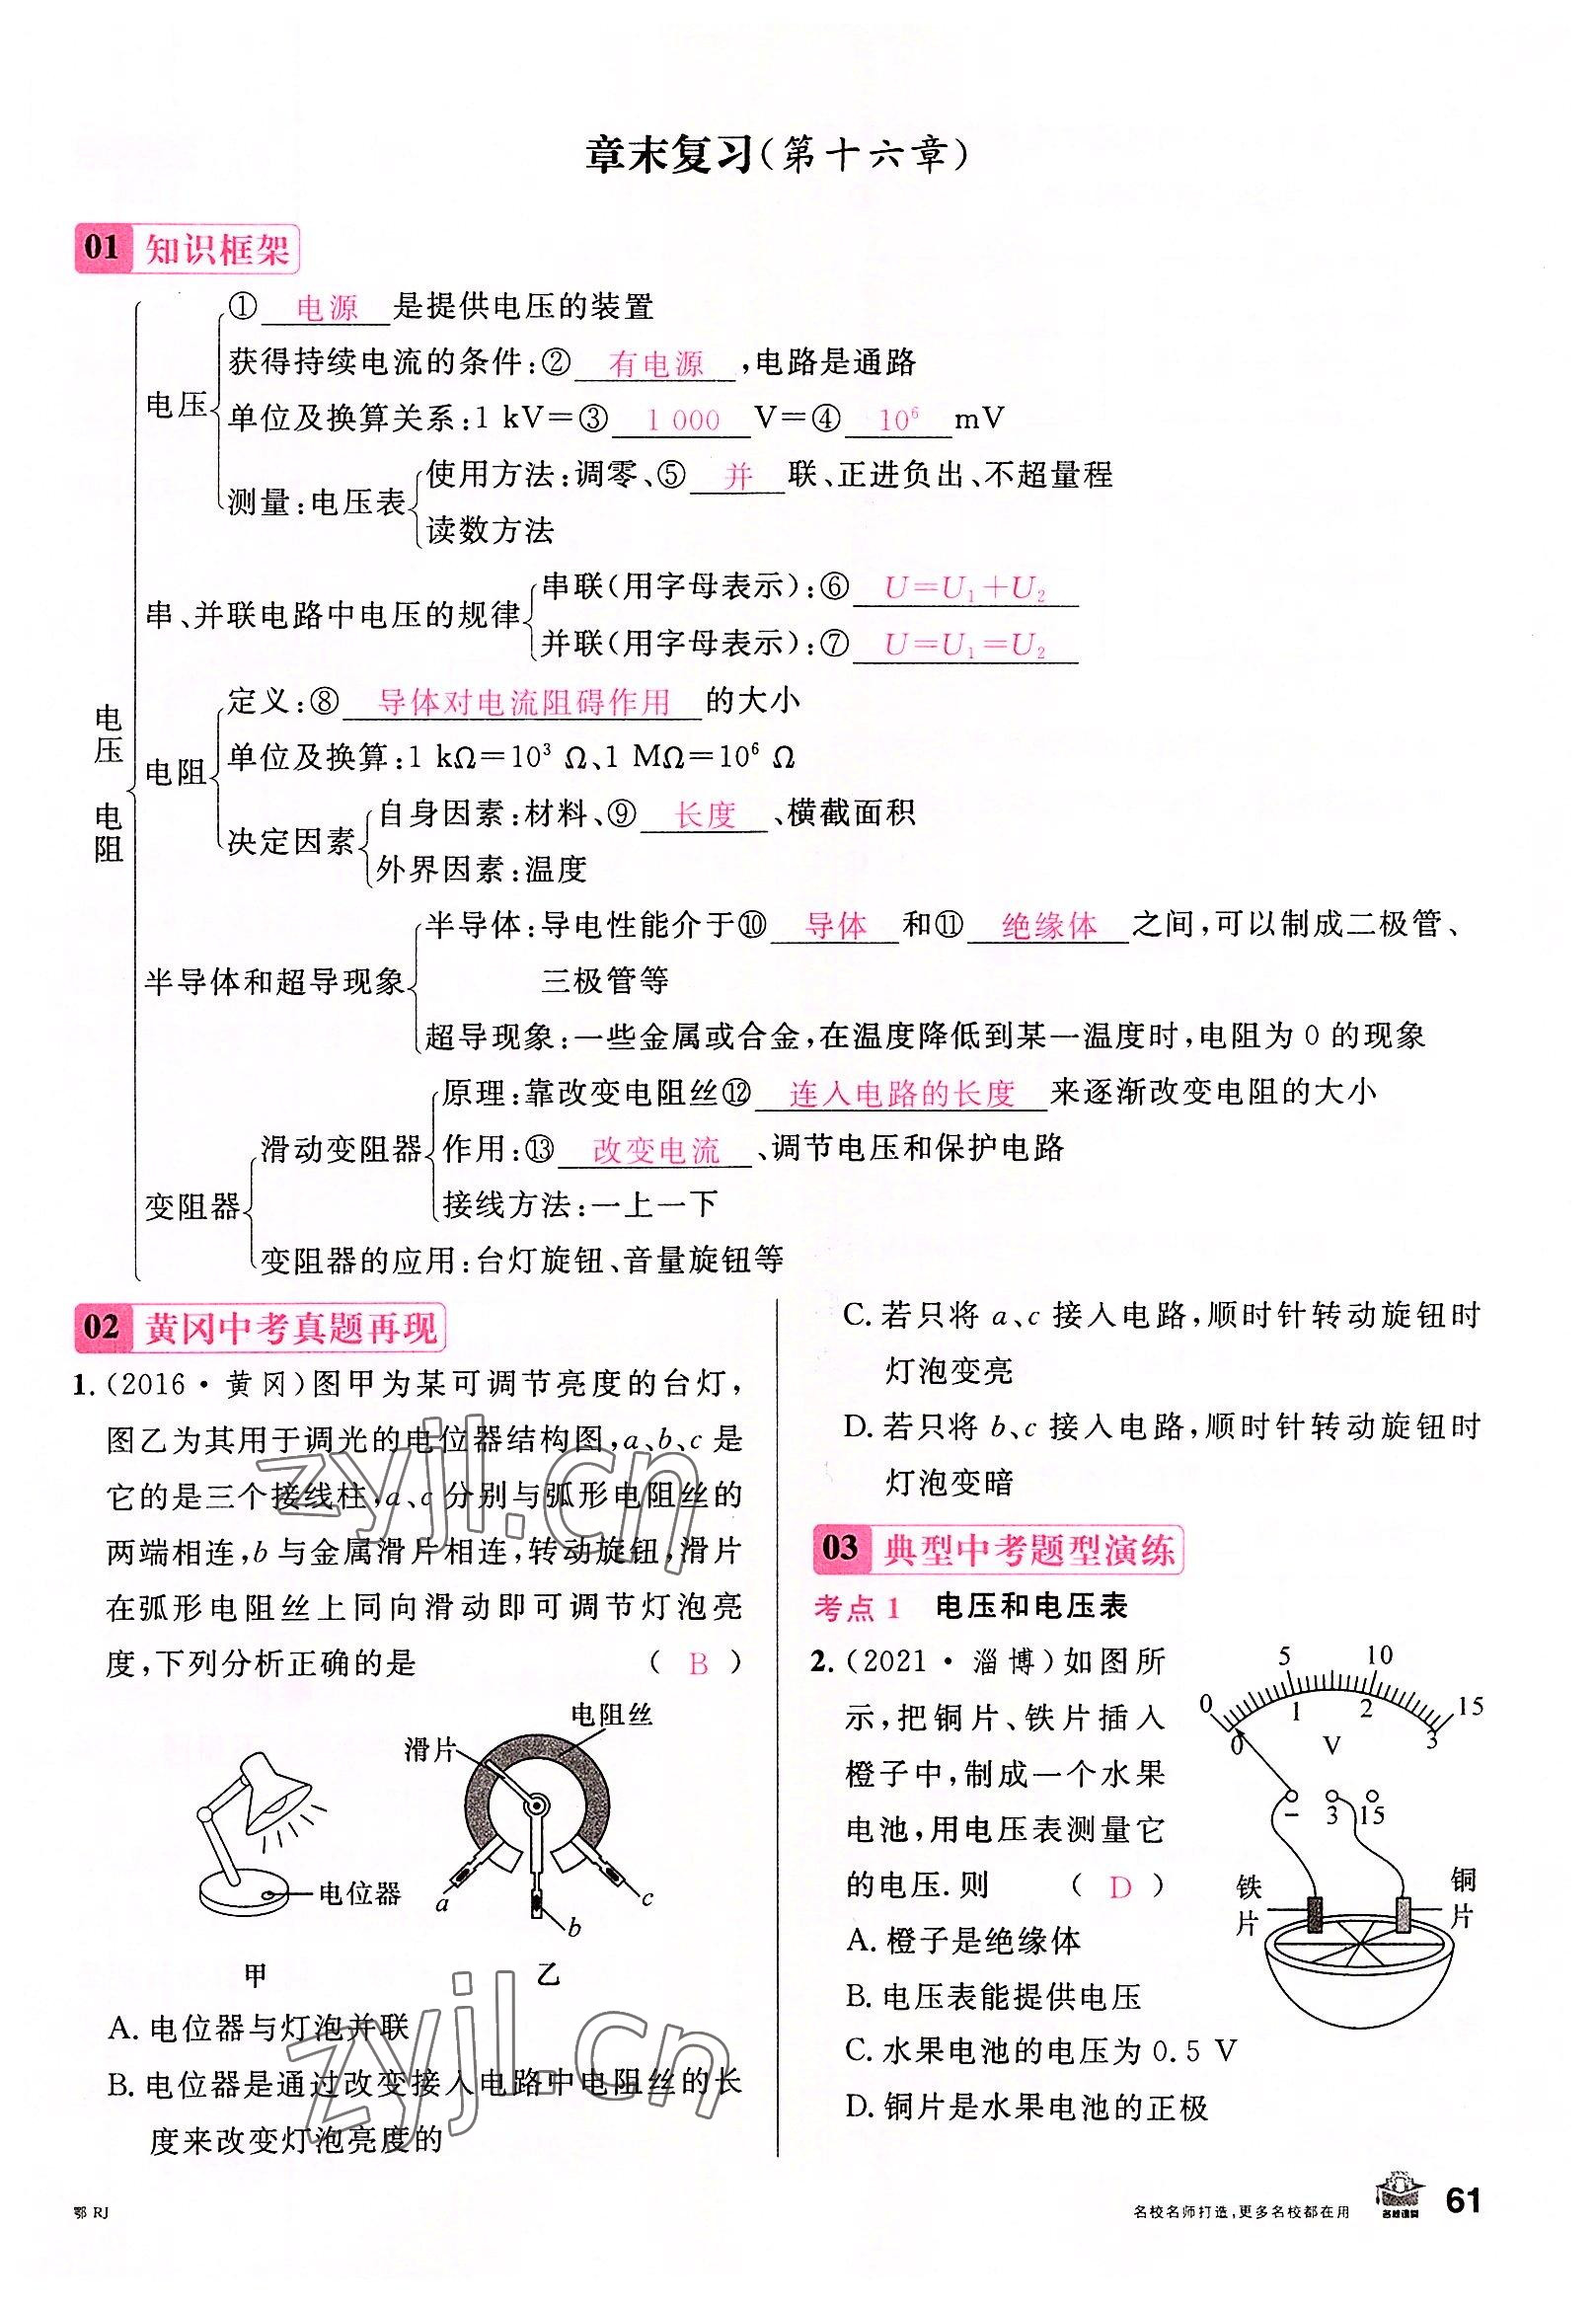 章末复习(第十六章)
01 知识框架
电压 电阻
电压
① 电源 是提供电压的装置
获得持续电流的条件:② 有电源 ,电路是通路
单位及换算关系:1 kV=③ 1 000 V=④ 10⁶ mV
测量:电压表
使用方法:调零、⑤ 并 联、正进负出、不超量程
读数方法
串、并联电路中电压的规律
串联(用字母表示):⑥ U=U₁+U₂
并联(用字母表示):⑦ U=U₁=U₂
电阻
定义:⑧ 导体对电流阻碍作用 的大小
单位及换算:1 kΩ=10³ Ω、1 MΩ=10⁶ Ω
决定因素
自身因素:材料、⑨ 长度 、横截面积
外界因素:温度
半导体和超导现象
半导体:导电性能介于⑩ 导体 和⑪ 绝缘体 之间,可以制成二极管、
三极管等
超导现象:一些金属或合金,在温度降低到某一温度时,电阻为 0 的现象
变阻器
滑动变阻器
原理:靠改变电阻丝⑫ 连入电路的长度 来逐渐改变电阻的大小
作用:⑬ 改变电流 、调节电压和保护电路
接线方法:一上一下
变阻器的应用:台灯旋钮、音量旋钮等
02 黄冈中考真题再现
1.(2016·黄冈)图甲为某可调节亮度的台灯,
图乙为其用于调光的电位器结构图,a、b、c 是
它的是三个接线柱,a、c 分别与弧形电阻丝的
两端相连,b 与金属滑片相连,转动旋钮,滑片
在弧形电阻丝上同向滑动即可调节灯泡亮
度,下列分析正确的是 ( B )
电位器
甲
电阻丝
滑片
a
b
c
乙
A. 电位器与灯泡并联
B. 电位器是通过改变接入电路中电阻丝的长
度来改变灯泡亮度的
C. 若只将 a、c 接入电路,顺时针转动旋钮时
灯泡变亮
D. 若只将 b、c 接入电路,顺时针转动旋钮时
灯泡变暗
03 典型中考题型演练
考点 1 电压和电压表
2.(2021·淄博)如图所
示,把铜片、铁片插入
橙子中,制成一个水果
电池,用电压表测量它
的电压.则 ( D )
0 5 10 15
0 1 2 3
V
- 3 15
铁片
铜片
A. 橙子是绝缘体
B. 电压表能提供电压
C. 水果电池的电压为 0.5 V
D. 铜片是水果电池的正极
zyjl.cn
zyjl.cn
鄂 RJ
名校名师打造,更多名校都在用
名校课堂
61